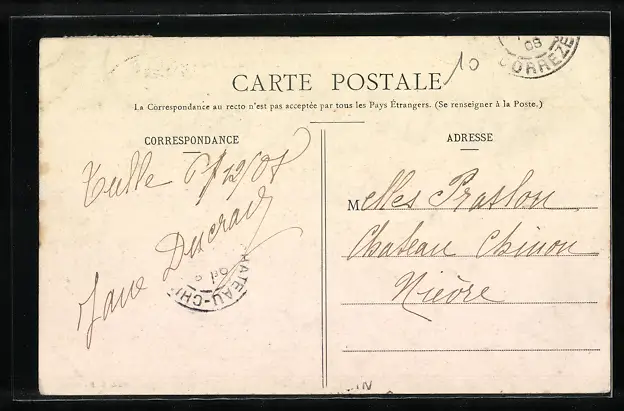 10
08
CORREZE
CARTE POSTALE
La Correspondance au recto n'est pas acceptée par tous les Pays Étrangers. (Se renseigner à la Poste.)
CORRESPONDANCE
Tulle 6/12/07
CHATEAU-CHI
ADRESSE
Melles Praslon
Chateau Chinon
Nièvre